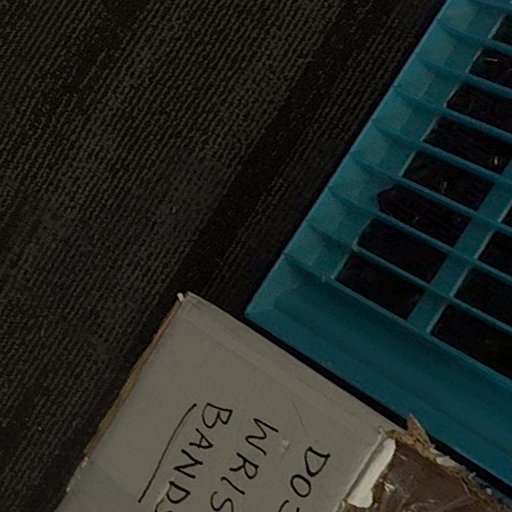 DOS
WRIS
BANDS